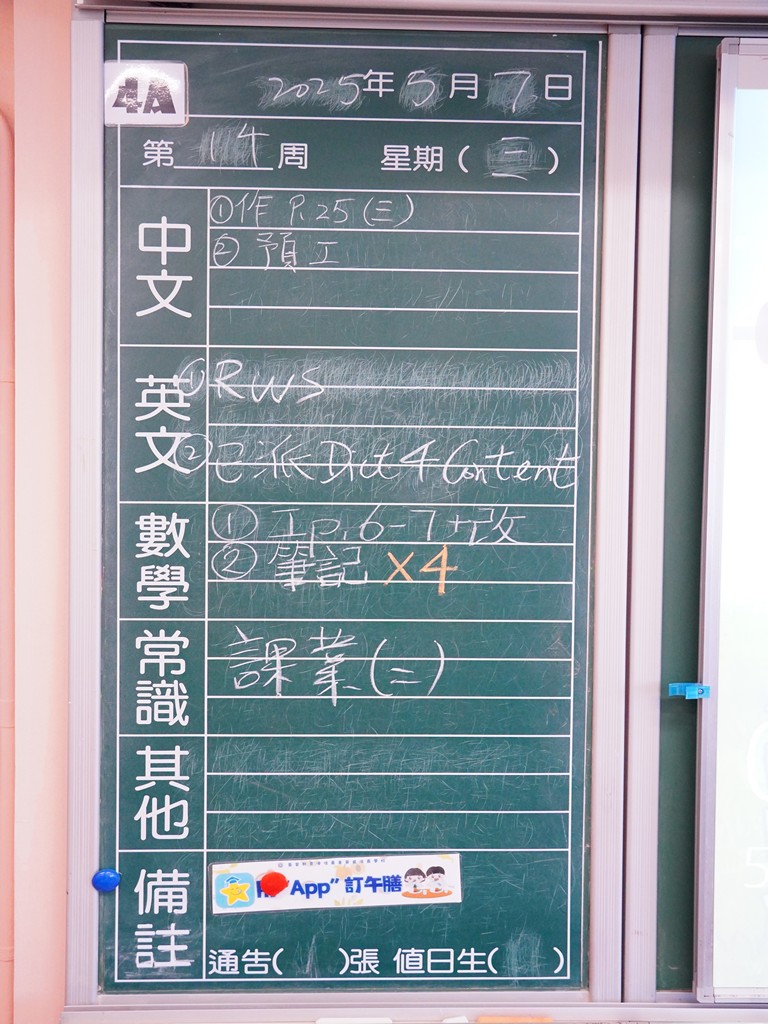 4A
2025年5月7日
第14周 星期(三)
中文
①作 P.25(三)
②預工
英文
①RWS
②已派Dict 4 Content
數學
①工p.6-7+改
②筆記 ×4
常識
課業(二)
其他
備註
用"App"訂午膳
通告( )張 值日生( )